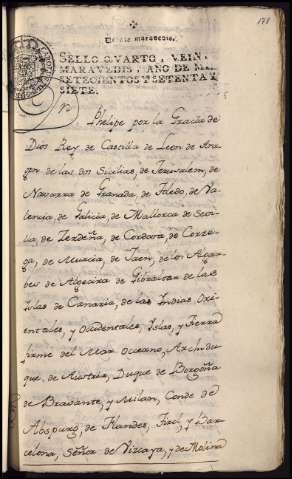 178
Veinte maravedis.
SELLO QVARTO, VEIN
MARAVEDIS, AÑO DE M
SETECIENTOS Y SETENTA Y
SIETE.
Dn Phelipe por la Gracia de
Dios Rey de Castilla de Leon de Ara
gon de las dos Sicilias, de Jerusalem, de
Navarra de Granada de Toledo, de Va
lencia de Galicia, de Mallorca de Sevi
lla, de Zerdeña, de Cordova, de Corze
ga, de Murcia, de Jaen, de los Algar
bes de Algecira de Gibraltar de las
Islas de Canaria, de las Indias Ori
entales, y Ocidentales, Islas, y Tierra
firme del Mar Oceano, Archidu
que de Austria, Duque de Borgoña
de Bravante, y Milan, Conde de
Abspurg, de Flandes, Tirol, y Bar
celona, Señor de Vizcaya, y de Molina